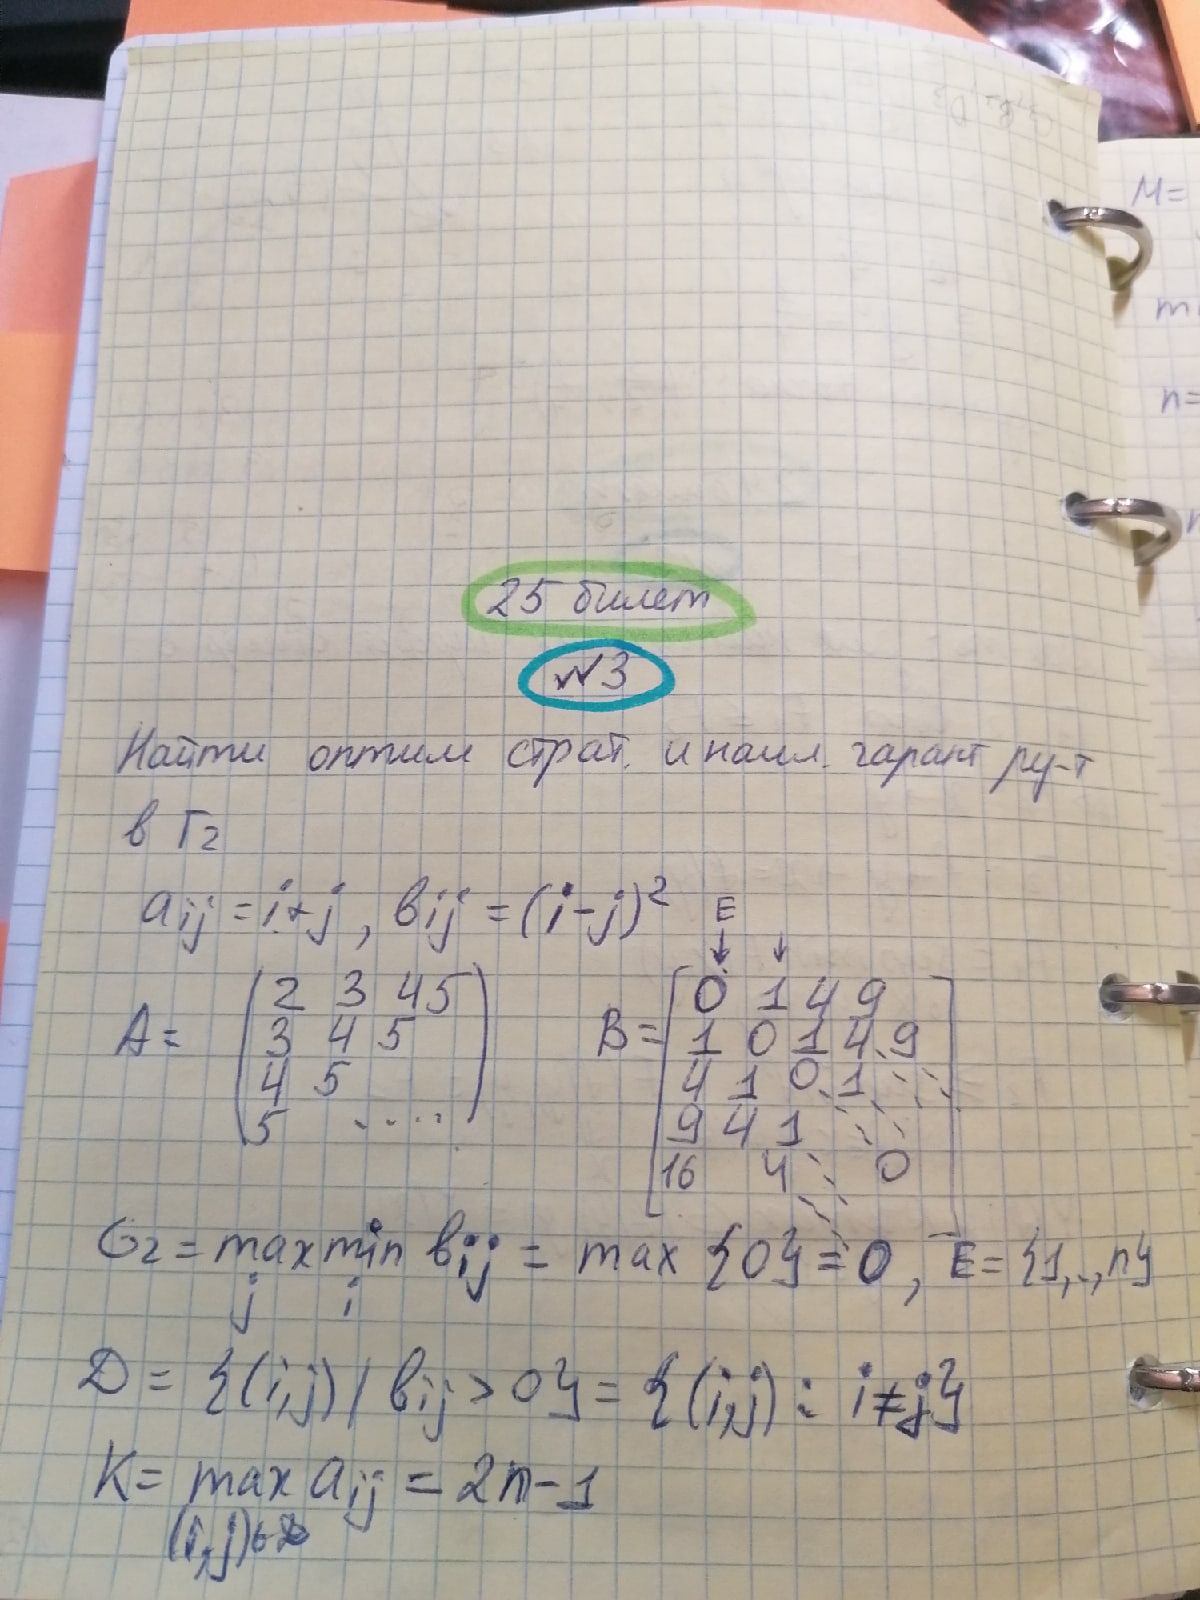 25 билет
№3
Найти оптим страт. и наил. гарант ру-т
в Г2
aij = i+j, bij = (i-j)² E
↓ ↓
A= (2 3 4 5
3 4 5
4 5
5 ....)
B= [0 1 4 9
1 0 1 4 9
4 1 0 1
9 4 1
16 4 0]
G2 = max min bij = max {0} = 0, E = {1,..,n}
j i
D = {(i,j) | bij > 0} = {(i,j) : i≠j}
K = max aij = 2n-1
(i,j)∈D
M=
m
n=